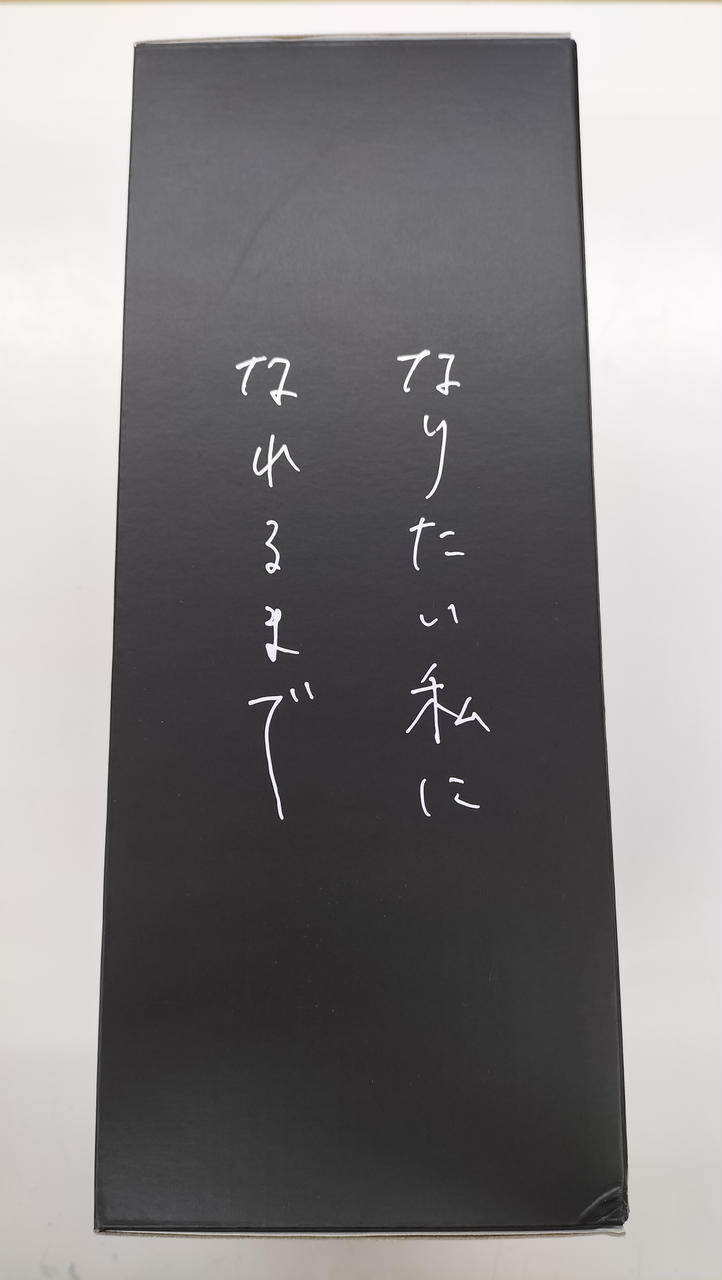 なりたい私に
なれるまで